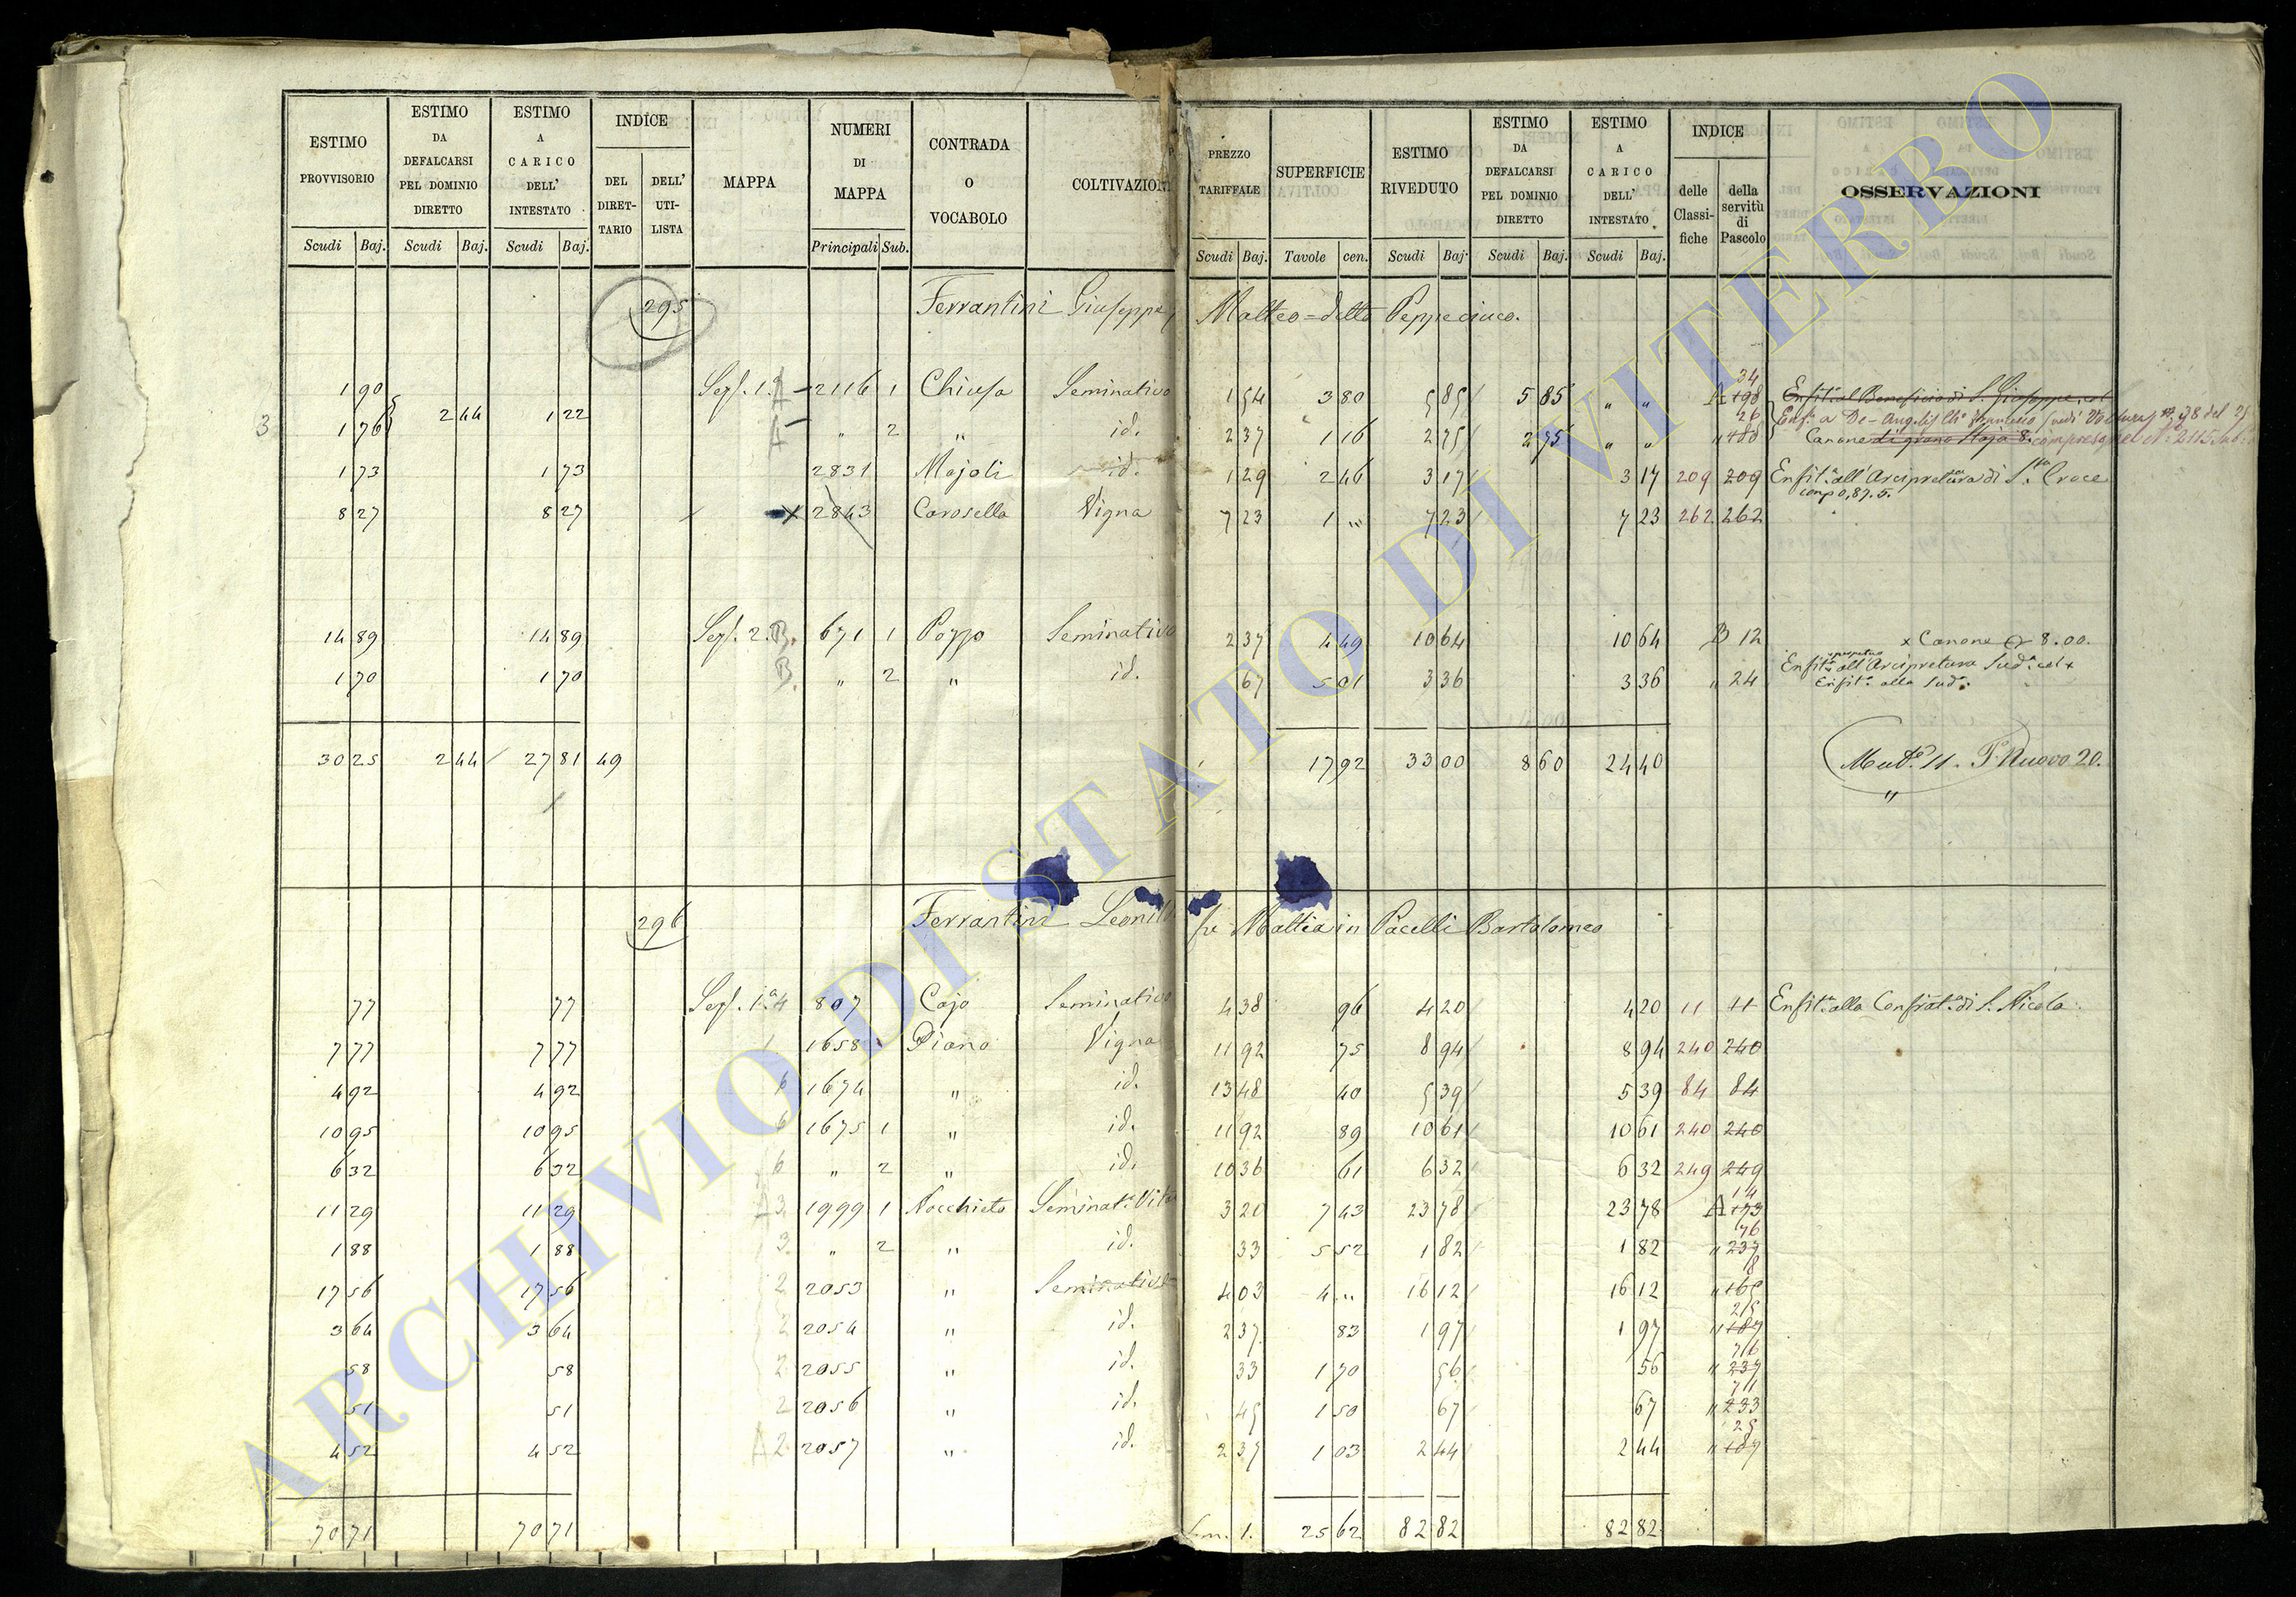 ESTIMO PROVVISORIO | ESTIMO DA DEFALCARSI PEL DOMINIO DIRETTO | ESTIMO A CARICO DELL' INTESTATO | INDICE DEL DIRET-TARIO | DELL' UTI-LISTA | MAPPA | NUMERI DI MAPPA | CONTRADA O VOCABOLO | COLTIVAZION | PREZZO TARIFFALE | SUPERFICIE | ESTIMO RIVEDUTO | ESTIMO DA DEFALCARSI PEL DOMINIO DIRETTO | ESTIMO A CARICO DELL' INTESTATO | INDICE delle Classi-fiche | della servitù di Pascolo | OSSERVAZIONI
Scudi Baj. | Scudi Baj. | Scudi Baj. | Principali Sub. | Scudi Baj. | Tavole cen. | Scudi Baj. | Scudi Baj. | Scudi Baj.
295 Ferrantini Giuseppe Matteo = detto Peppeciuco.
1 90 Sez. 1ª 2116 1 Chiusa Seminativo 1 54 3 80 5 85 5 85 " " A 198 34 Enfit. al Beneficio di S. Giuseppe col
3 1 76 2 44 1 22 " 2 " id. 2 37 1 16 2 75 2 75 " " " 188 26 Canone di grano Staja 8.
1 73 1 73 2831 Majoli id. 1 29 2 46 3 17 3 17 209 209 Enfit. all'Arcipretura di S.ta Croce
8 27 8 27 x 2843 Carosella Vigna 7 23 1 " 7 23 7 23 262 262
14 89 14 89 Sez. 2. B. 671 1 Pozzo Seminativo 2 37 4 49 10 64 10 64 B 12 x Canone 8.00.
Enfit. perpetua all'Arcipretura Sud. col x
1 70 1 70 B. " 2 " id. 67 5 01 3 36 3 36 " 24 Enfit. alla Sud.
30 25 2 44 27 81 49 17 92 33 00 8 60 24 40 Mut. 11. P. Nuovo 20.
296 Ferrantini fu Mattia in Pacelli Bartolomeo
77 77 Sez. 1ª 4 807 Cajo Seminativo 4 38 96 4 20 4 20 11 11 Enfit. alla Confrat. di S. Nicola
7 77 7 77 1658 Piano Vigna 11 92 75 8 94 8 94 240 240
4 92 4 92 6 1674 " id. 13 48 40 5 39 5 39 84 84
10 95 10 95 6 1675 1 " id. 11 92 89 10 61 10 61 240 240
6 32 6 32 6 " 2 " id. 10 36 61 6 32 6 32 249 249
11 29 11 29 3 1999 1 Nocchieto Seminat. 3 20 7 43 23 78 23 78 A 173 14
1 88 1 88 3 " 2 " id. 33 5 52 1 82 1 82 " 237 76
17 56 17 56 2 2053 " Seminativo 4 03 4 " 16 12 16 12 " 165 18
3 64 3 64 2 2054 " id. 2 37 83 1 97 1 97 " 187 25
58 58 2 2055 " id. 33 1 70 56 56 " 237 76
51 51 2 2056 " id. 45 1 50 67 67 " 233 71
4 52 4 52 A 2 2057 " id. 2 37 1 03 2 44 2 44 " 187 25
70 71 70 71 25 62 82 82 82 82
ARCHIVIO DI STATO DI VITERBO